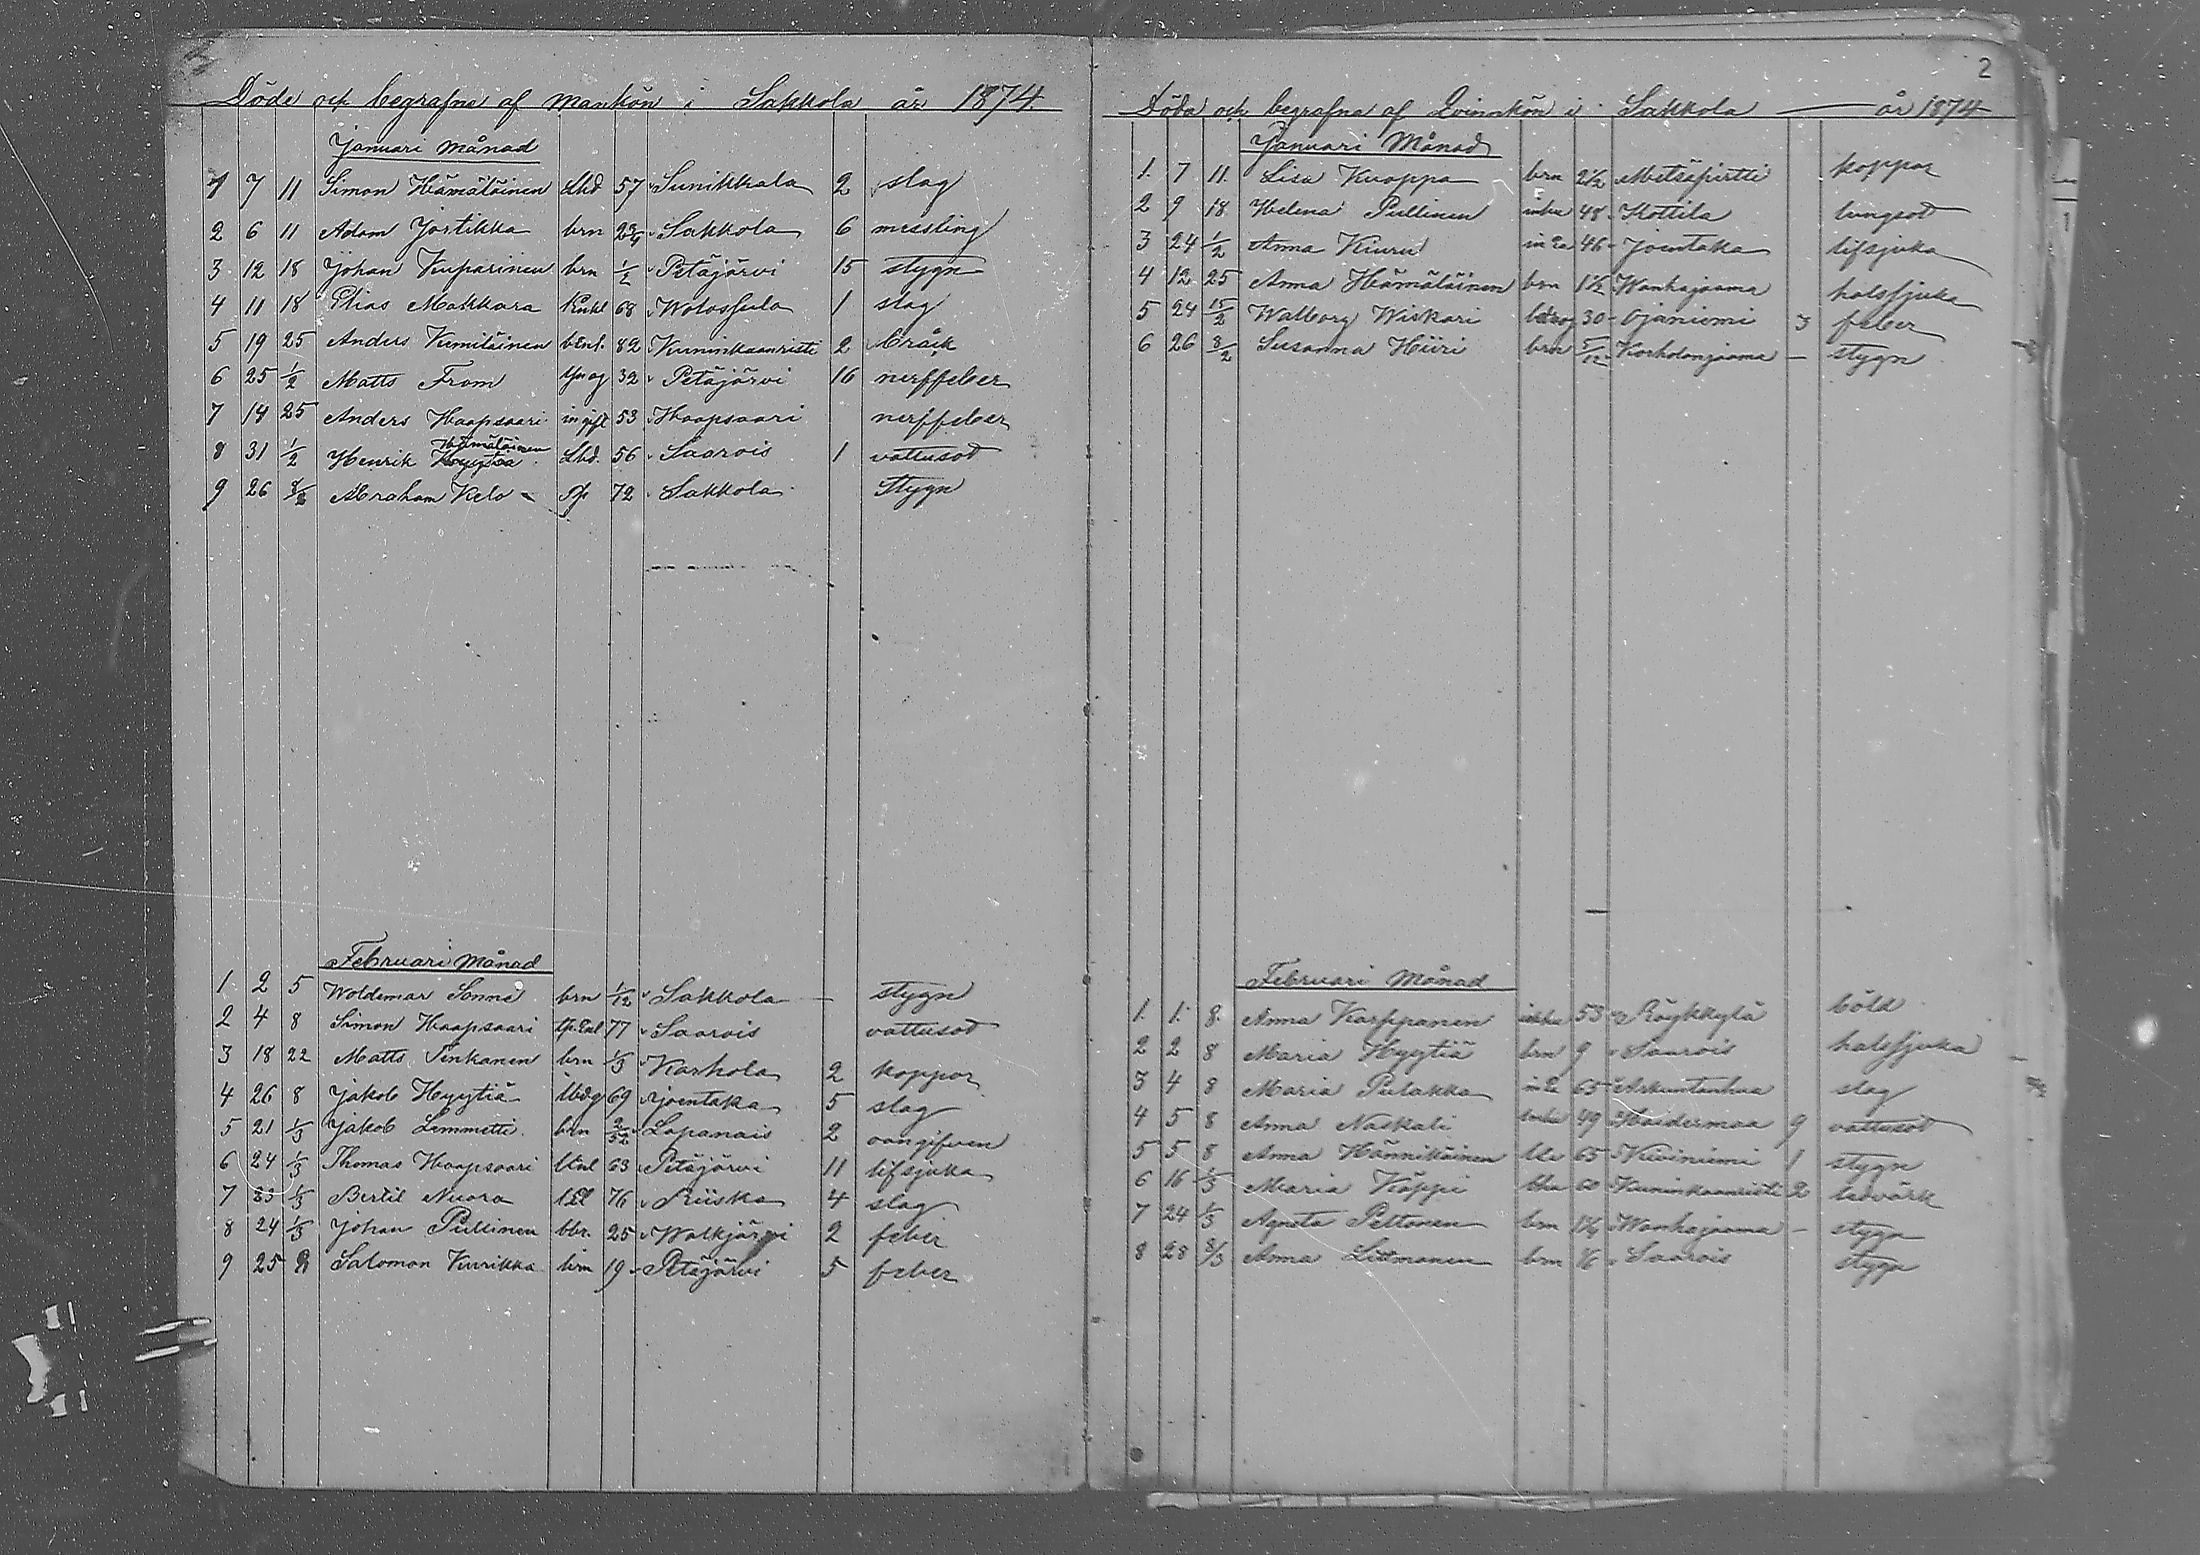 Döde och begrafne af mankön i Sakkola år 1874
Januari månad
1 7 11 Simon Hämäläinen Lbd 57 Sunikkala 2 slag
2 6 11 Adam Jortikka brn 2 3/4 Sakkola 6 messling
3 12 18 Johan Kuparinen brn 1/2 Petäjärvi 15 stygn
4 11 18 Elias Makkara 68 1 slag
5 19 25 Anders Kemiläinen 82 Kuninkaanristi 2 bråck
6 25 1/2 Matts From 32 Petäjärvi 16 nerffeber
7 14 25 Anders Haapsaari 53 Haapsaari nerffeber
8 31 1/2 Henrik Hämäläinen Lbd. 56 Saarois 1 vattusot
9 26 8/2 Abraham Kelo 72 Sakkola Stygn
Februari månad
1 2 5 Woldemar Sonne brn 1/12 Sakkola - stygn
2 4 8 Simon Haapsaari 77 Saarois vattusot
3 18 22 Matts Tenkanen brn 1/3 Karhola 2 koppor
4 26 8 Jakob Hyytiä 69 Joentaka 5 slag
5 21 1/3 Jakob Lemmetti brn 2/52 Lapanais 2 oangifven
6 24 1/3 Thomas Haapsaari 63 Petäjärvi 11 lifsjuka
7 23 1/3 Bertil Nuora 76 Riiska 4 slag
8 24 1/3 Johan Pullinen bbr. 25 Walkjärvi 2 feber
9 25 Salomon Kurikka brn 19 Petäjärvi 5 feber
2
Döda och begrafne af Qvinnkön i Sakkola år 1874
Januari Månad
1. 7 11. Lisa Kuoppa brn 2 1/2 Metsäpirtti koppor
2 9 18 Helena Pullinen 48 Kottila lungsot
3 24 1/2 Anna Kiuru 46 Joentaka lifsjuka
4 12 25 Anna Hämäläinen brn 1 1/2 Wanhajaama halssjuka
5 24 15/2 Walborg Wiskari 30 Ojaniemi 3 feber
6 26 8/2 Susanna Hiiri brn 5/12 Korholanjaama - stygn
Februari Månad
1. 1. 8. Anna Karppanen 53 Röykkylä böld
2 2 8 Maria Hyytiä brn 9 Saarois halssjuka
3 4 8 Maria Pulakka 65 Arkuntanhua slag
4 5 8 Anna Naskali 49 Haidermaa 9 vattusot
5 5 8 Anna Hännikäinen 65 Kiviniemi 1 stygn
6 16 1/3 Maria Käppi 60 Kuninkaanristi 2
7 24 1/3 Agneta Peltonen brn Wanhajaama - stygn
8 28 8/3 Anna Littmanen brn 1/6 Saarois stygn